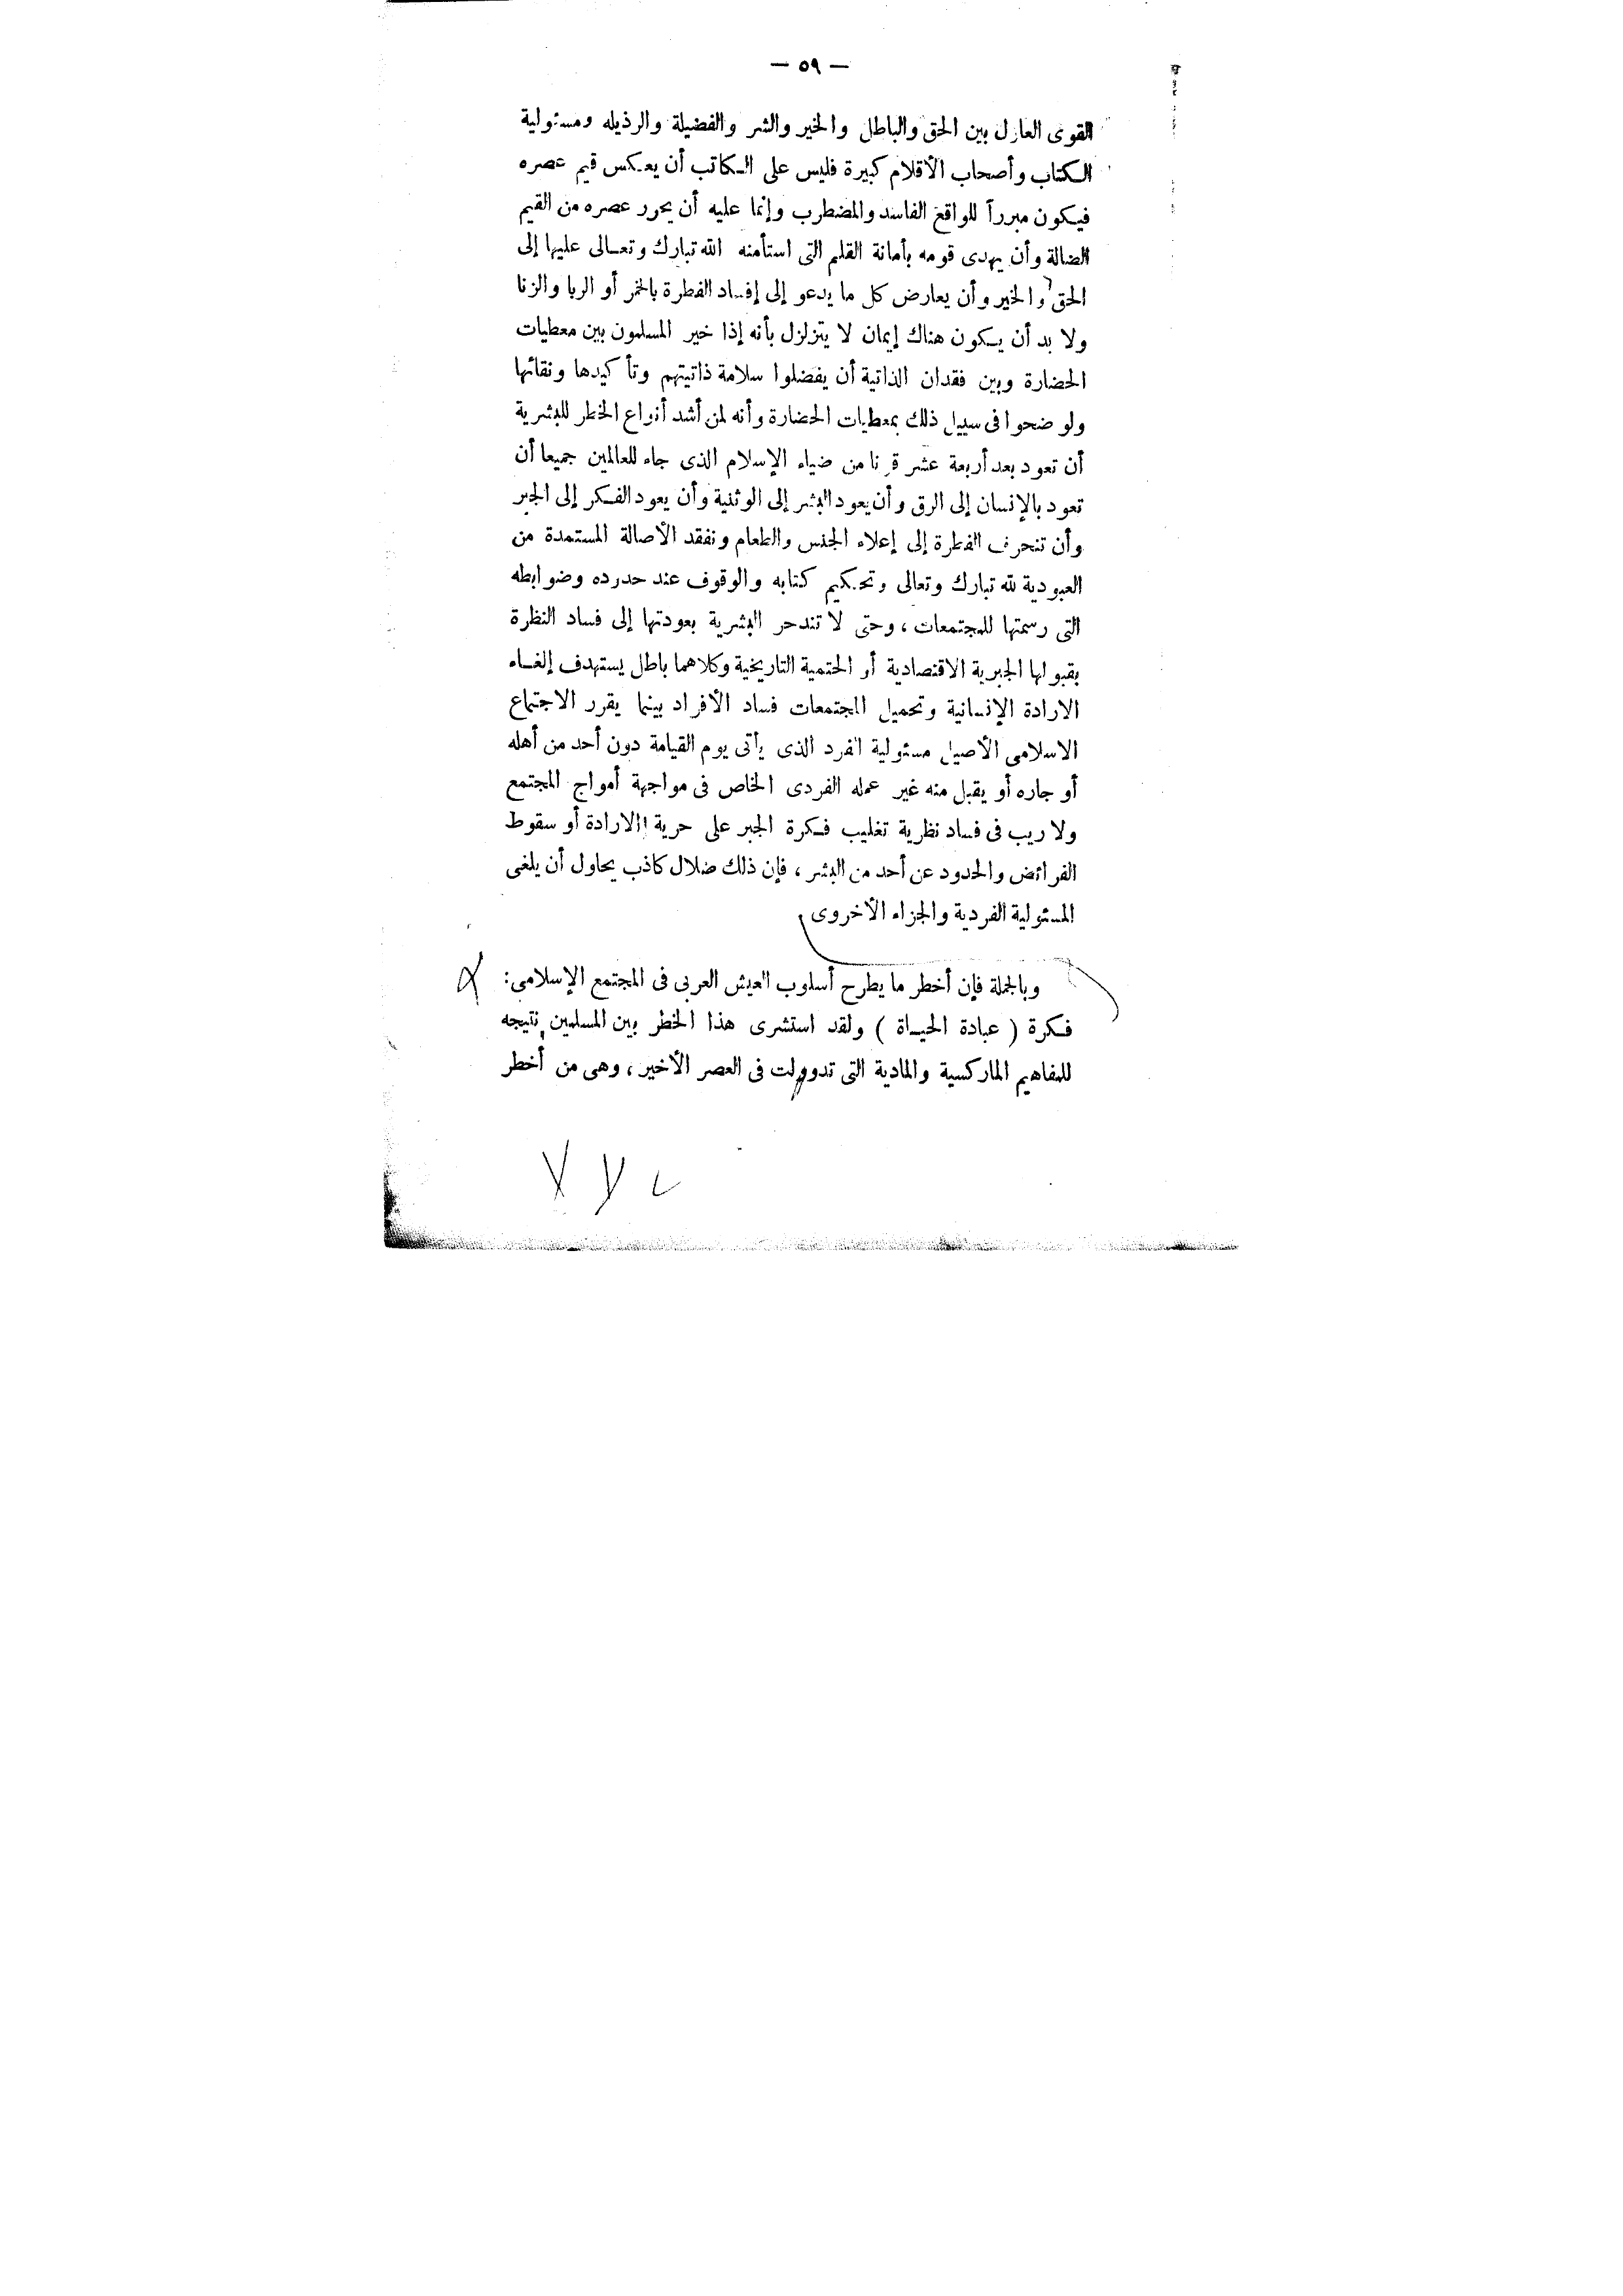 — ٥٩ —
القوى العازل بين الحق والباطل والخير والشر والفضيلة والرذيله ومسئولية
الكتاب وأصحاب الأقلام كبيرة فليس على الكاتب أن يعكس قيم عصره
فيكون مبرراً للواقع الفاسد والمضطرب وإنما عليه أن يحرر عصره من القيم
الضالة وأن يهدى قومه بأمانة القلم التى استأمنه الله تبارك وتعالى عليها إلى
الحق والخير وأن يعارض كل ما يدعو إلى إفساد الفطرة بالخمر أو الربا والزنا
ولا بد أن يكون هناك إيمان لا يتزلزل بأنه إذا خير المسلمون بين معطيات
الحضارة وبين فقدان الذاتية أن يفضلوا سلامة ذاتيتهم وتأكيدها ونقائها
ولو ضحوا فى سبيل ذلك بمعطيات الحضارة وأنه لمن أشد أنواع الخطر للبشرية
أن تعود بعد أربعة عشر قرنا من ضياء الإسلام الذى جاء للعالمين جميعا أن
تعود بالإنسان إلى الرق وأن يعود البشر إلى الوثنية وأن يعود الفكر إلى الجبر
وأن تنحرف الفطرة إلى إعلاء الجنس والطعام ونفقد الأصالة المستمدة من
العبودية لله تبارك وتعالى وتحكيم كتابه والوقوف عند حدوده وضوابطه
التى رسمتها للمجتمعات ، وحتى لا تندحر البشرية بعودتها إلى فساد النظرة
بقبولها الجبرية الاقتصادية أو الحتمية التاريخية وكلاهما باطل يستهدف إلغاء
الارادة الإنسانية وتحميل المجتمعات فساد الأفراد بينما يقرر الاجتماع
الاسلامى الأصيل مسئولية الفرد الذى يأتى يوم القيامة دون أحد من أهله
أو جاره أو يقبل منه غير عمله الفردى الخاص فى مواجهة أمواج المجتمع
ولا ريب فى فساد نظرية تغليب فكرة الجبر على حرية الارادة أو سقوط
الفرائض والحدود عن أحد من البشر ، فإن ذلك ضلال كاذب يحاول أن يلغى
المسئولية الفردية والجزاء الأخروى
وبالجملة فإن أخطر ما يطرح أسلوب العيش العربى فى المجتمع الإسلامى :
فكرة ( عبادة الحياة ) ولقد استشرى هذا الخطر بين المسلمين نتيجه
للمفاهيم الماركسية والمادية التى تدوولت فى العصر الأخير ، وهى من أخطر